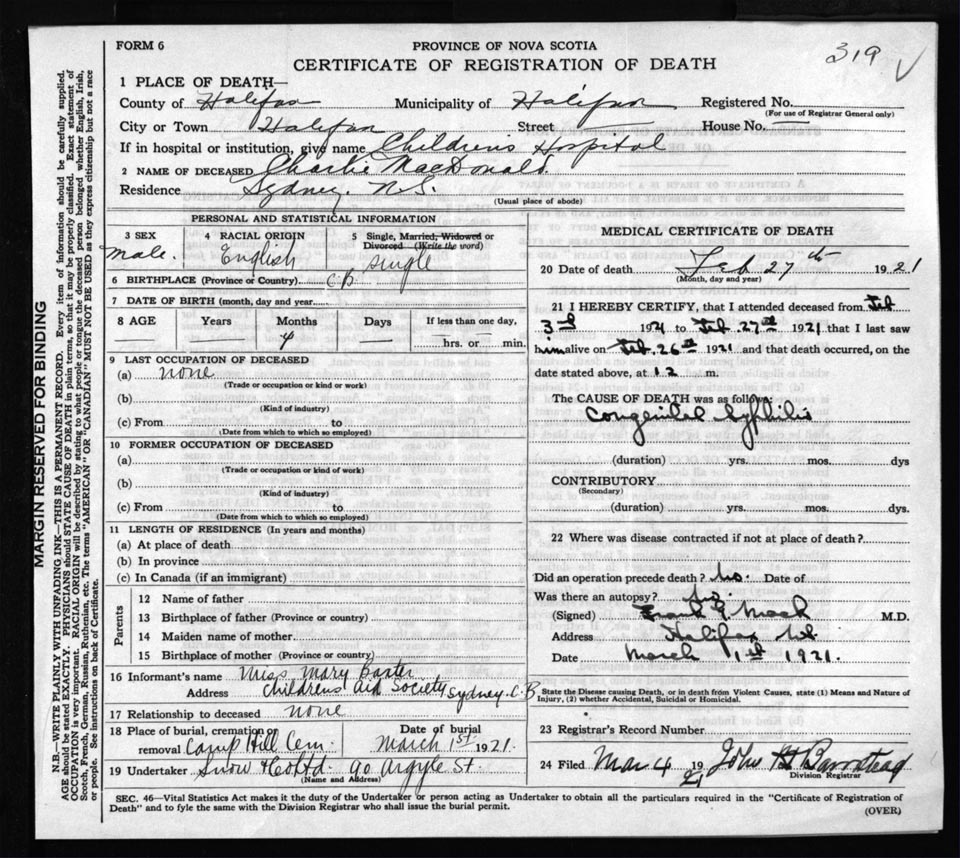 319
FORM 6
PROVINCE OF NOVA SCOTIA
CERTIFICATE OF REGISTRATION OF DEATH
MARGIN RESERVED FOR BINDING
N.B.—WRITE PLAINLY WITH UNFADING INK—THIS IS A PERMANENT RECORD. Every item of information should be carefully supplied.
AGE should be stated EXACTLY. PHYSICIANS should STATE CAUSE OF DEATH in plain terms, so that it may be properly classified. Exact statement of
OCCUPATION is very important. RACIAL ORIGIN will be described by stating to what people or tongue the deceased person belonged whether English, Irish,
Scotch, French, German, Russian, Ruthenian, etc. The terms "AMERICAN" OR "CANADIAN" MUST NOT BE USED as they express citizenship but not a race
or people. See instructions on back of Certificate.
1 PLACE OF DEATH—
County of Halifax Municipality of Halifax Registered No.
(For use of Registrar General only)
City or Town Halifax Street House No.
If in hospital or institution, give name Childrens Hospital
2 NAME OF DECEASED Charlie MacDonald.
Residence Sydney, N.S.
(Usual place of abode)
PERSONAL AND STATISTICAL INFORMATION
3 SEX 4 RACIAL ORIGIN 5 Single, Married, Widowed or
Divorced (Write the word)
male. English single
6 BIRTHPLACE (Province or Country) C.B.
7 DATE OF BIRTH (month, day and year)
8 AGE Years Months Days If less than one day,
4 hrs. or min.
9 LAST OCCUPATION OF DECEASED
(a) none
(Trade or occupation or kind or work)
(b)
(Kind of industry)
(c) From to
(Date from which to which so employed)
10 FORMER OCCUPATION OF DECEASED
(a)
(Trade or occupation or kind of work)
(b)
(Kind of industry)
(c) From to
(Date from which to which so employed)
11 LENGTH OF RESIDENCE (In years and months)
(a) At place of death
(b) In province
(c) In Canada (if an immigrant)
Parents
12 Name of father
13 Birthplace of father (Province or country)
14 Maiden name of mother
15 Birthplace of mother (Province or country)
16 Informant's name Miss Mary Baxter
Address Childrens Aid Society Sydney. C.B
17 Relationship to deceased none
18 Place of burial, cremation or Date of burial
removal Camp Hill Cem. March 1st 1921.
19 Undertaker Snow & Co Ltd. 90 Argyle St.
(Name and Address)
MEDICAL CERTIFICATE OF DEATH
20 Date of death Feb 27th 1921
(Month, day and year)
21 I HEREBY CERTIFY, that I attended deceased from Feb
3rd 1921 to Feb. 27th 1921 that I last saw
him alive on Feb. 26th 1921 and that death occurred, on the
date stated above, at 12 m.
The CAUSE OF DEATH was as follows:
Congenital Syphilis
(duration) yrs. mos. dys
CONTRIBUTORY
(Secondary)
(duration) yrs. mos. dys.
22 Where was disease contracted if not at place of death?
Did an operation precede death? No. Date of
Was there an autopsy? No.
(Signed) Frank Mack M.D.
Address Halifax N.S.
Date March 1st 1921.
State the Disease causing Death, or in death from Violent Causes, state (1) Means and Nature of
Injury, (2) whether Accidental, Suicidal or Homicidal.
23 Registrar's Record Number
24 Filed Mar 4 1921 John
Division Registrar
SEC. 46—Vital Statistics Act makes it the duty of the Undertaker or person acting as Undertaker to obtain all the particulars required in the "Certificate of Registration of
Death" and to fyle the same with the Division Registrar who shall issue the burial permit.
(OVER)